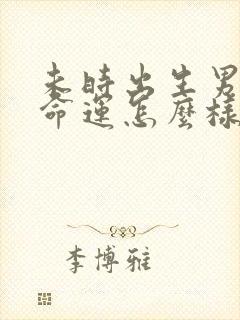 未時出生男
命運怎麼樣
李博雅